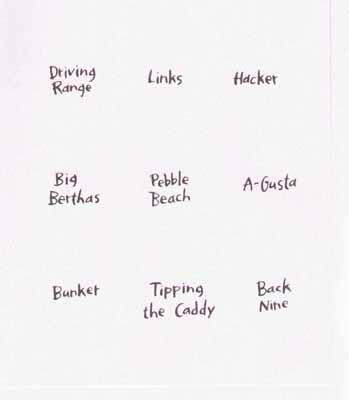 Driving Range
Links
Hacker
Big Berthas
Pebble Beach
A-Gusta
Bunker
Tipping the Caddy
Back Nine